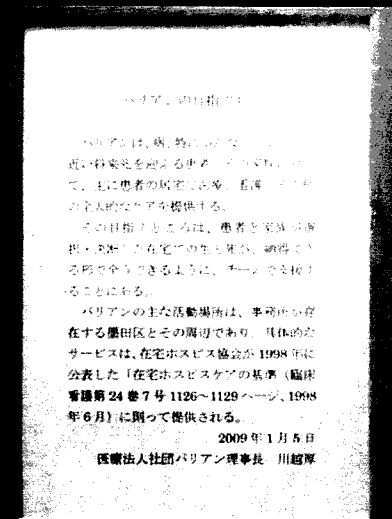 パリアンの目指す
パリアンは、病、特に
近い将来死を迎える患者
て、主に患者の居宅で医療、看護
の全人的なケアを提供する。
その目指すところは、患者と家族が選
択・決断した在宅での生と死が、納得でき
る形で全うできるように、チームで支援す
ることにある。
パリアンの主な活動場所は、事務所が存
在する墨田区とその周辺であり、具体的な
サービスは、在宅ホスピス協会が1998年に
公表した「在宅ホスピスケアの基準（臨床
看護第24巻7号1126〜1129ページ、1998
年6月）に則って提供される。
2009年1月5日
医療法人社団パリアン理事長 川越厚